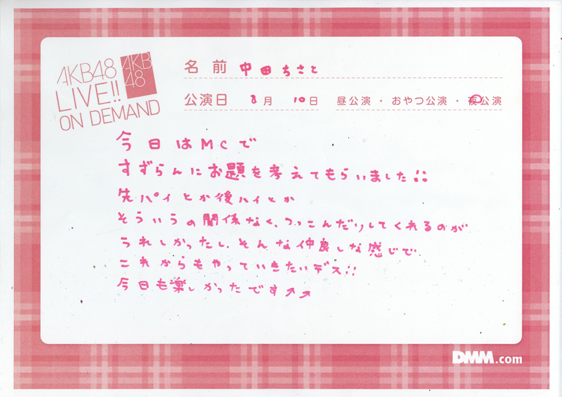 AKB48
LIVE!!
ON DEMAND
AKB
48
名前 中田ちさと
公演日 8月 10日 昼公演・おやつ公演・夜公演
今日はMCで
すずらんにお題を考えてもらいました!!
先パイとか後ハイとか
そういうの関係なく、つっこんだりしてくれるのが
うれしかったし、そんな仲良しな感じで
これからもやっていきたいデス!!
今日も楽しかったです↗↗
DMM.com